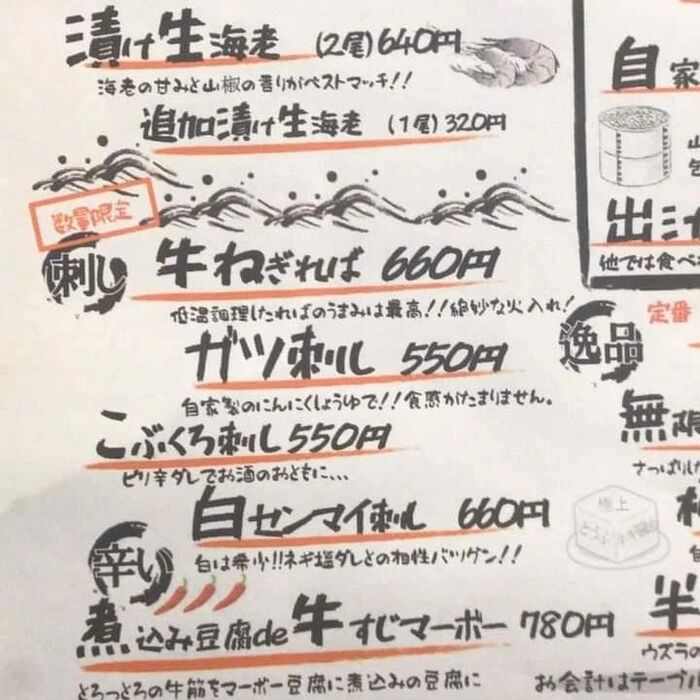 漬け生海老 (2尾)640円
海老の甘みと山椒の香りがベストマッチ!!
追加漬け生海老 (1尾)320円
数量限定
刺し
牛ねぎればー 660円
低温調理したればのうまみは最高!!絶妙な火入れ!
ガツ刺し 550円
自家製のにんにくしょうゆで!!食感がたまりません。
こぶくろ刺し550円
ピリ辛ダレでお酒のおともに、、、
白センマイ刺し 660円
白は希少!!ネギ塩ダレとの相性バツグン!!
辛い
煮込み豆腐de牛すじマーボー 780円
とろっとろの牛筋をマーボー豆腐に煮込みの豆腐に
自家
出汁
他では食べ
逸品
定番
無限
さっぱりし
極上
とうふ
半
ウズラの
お会計はテーブル